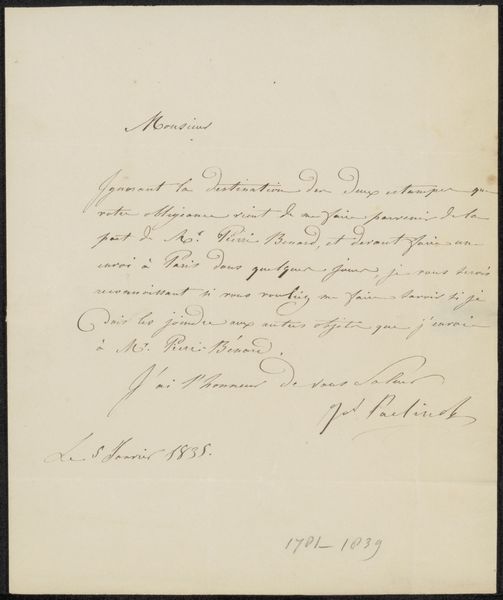 Monsieur
Ignorant la destination des deux estampes que
votre obligeance vient de me faire parvenir de la
part de Mr. Pieri Benard, et devant faire un
envoi à Paris dans quelques jours, je vous serois
reconnoissant si vous vouliez me faire savoir si je
dois les joindre aux autres objets que j'envoie
à Mr. Pieri-Bénard.
J'ai l'honneur de vous saluer
Jos Paelinck
Le 5 Janvier 1835.
1781-1839